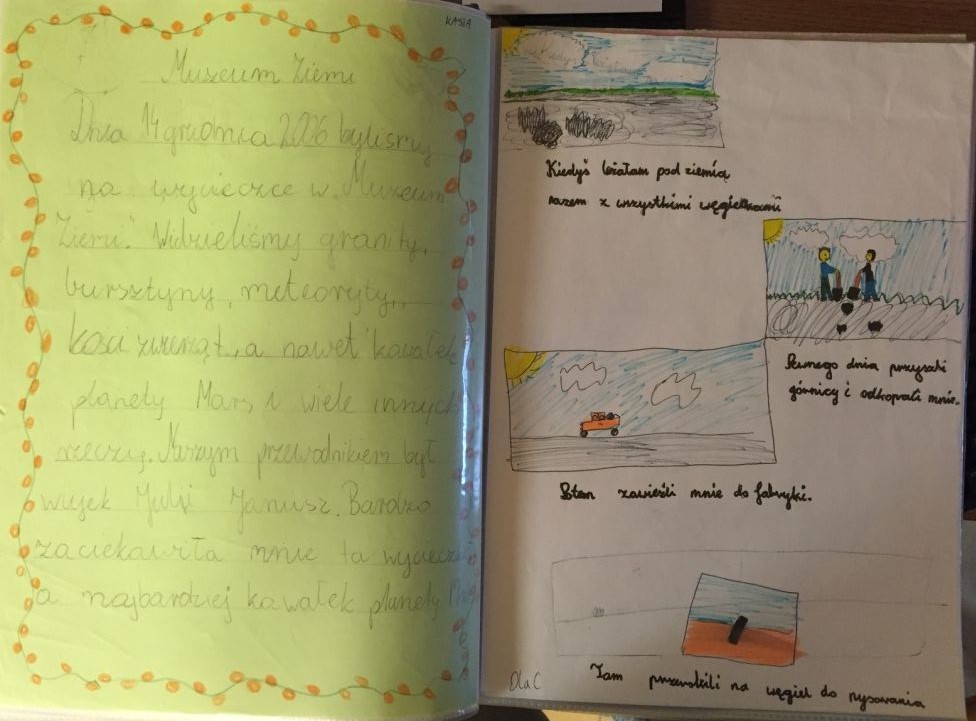 KASIA
Muzeum Ziemi
Dnia 14 grudnia 2006 byliśmy
na wycieczce w Muzeum
Ziemi. Widzieliśmy granity,
bursztyny, meteoryty,
kości zwierząt, a nawet kawałek
planety Mars i wiele innych
rzeczy. Naszym przewodnikiem był
wujek Julki Janusz. Bardzo
zaciekawiła mnie ta wyciecz
a najbardziej kawałek planety
Kiedyś leżałam pod ziemią
razem z wszystkimi węgielkami
Pewnego dnia przyszli
górnicy i odkopali mnie.
Potem zawieźli mnie do fabryki.
Tam przerobili na węgiel do rysowania
Ola C